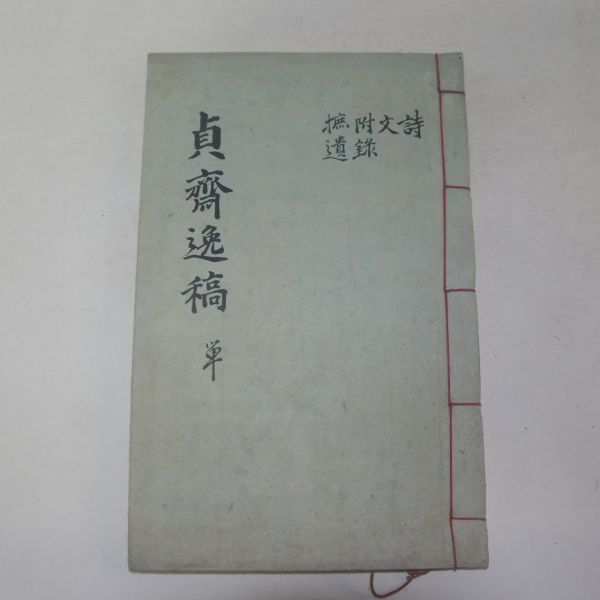 貞齋逸稿 単
詩
文
附錄
摭遺